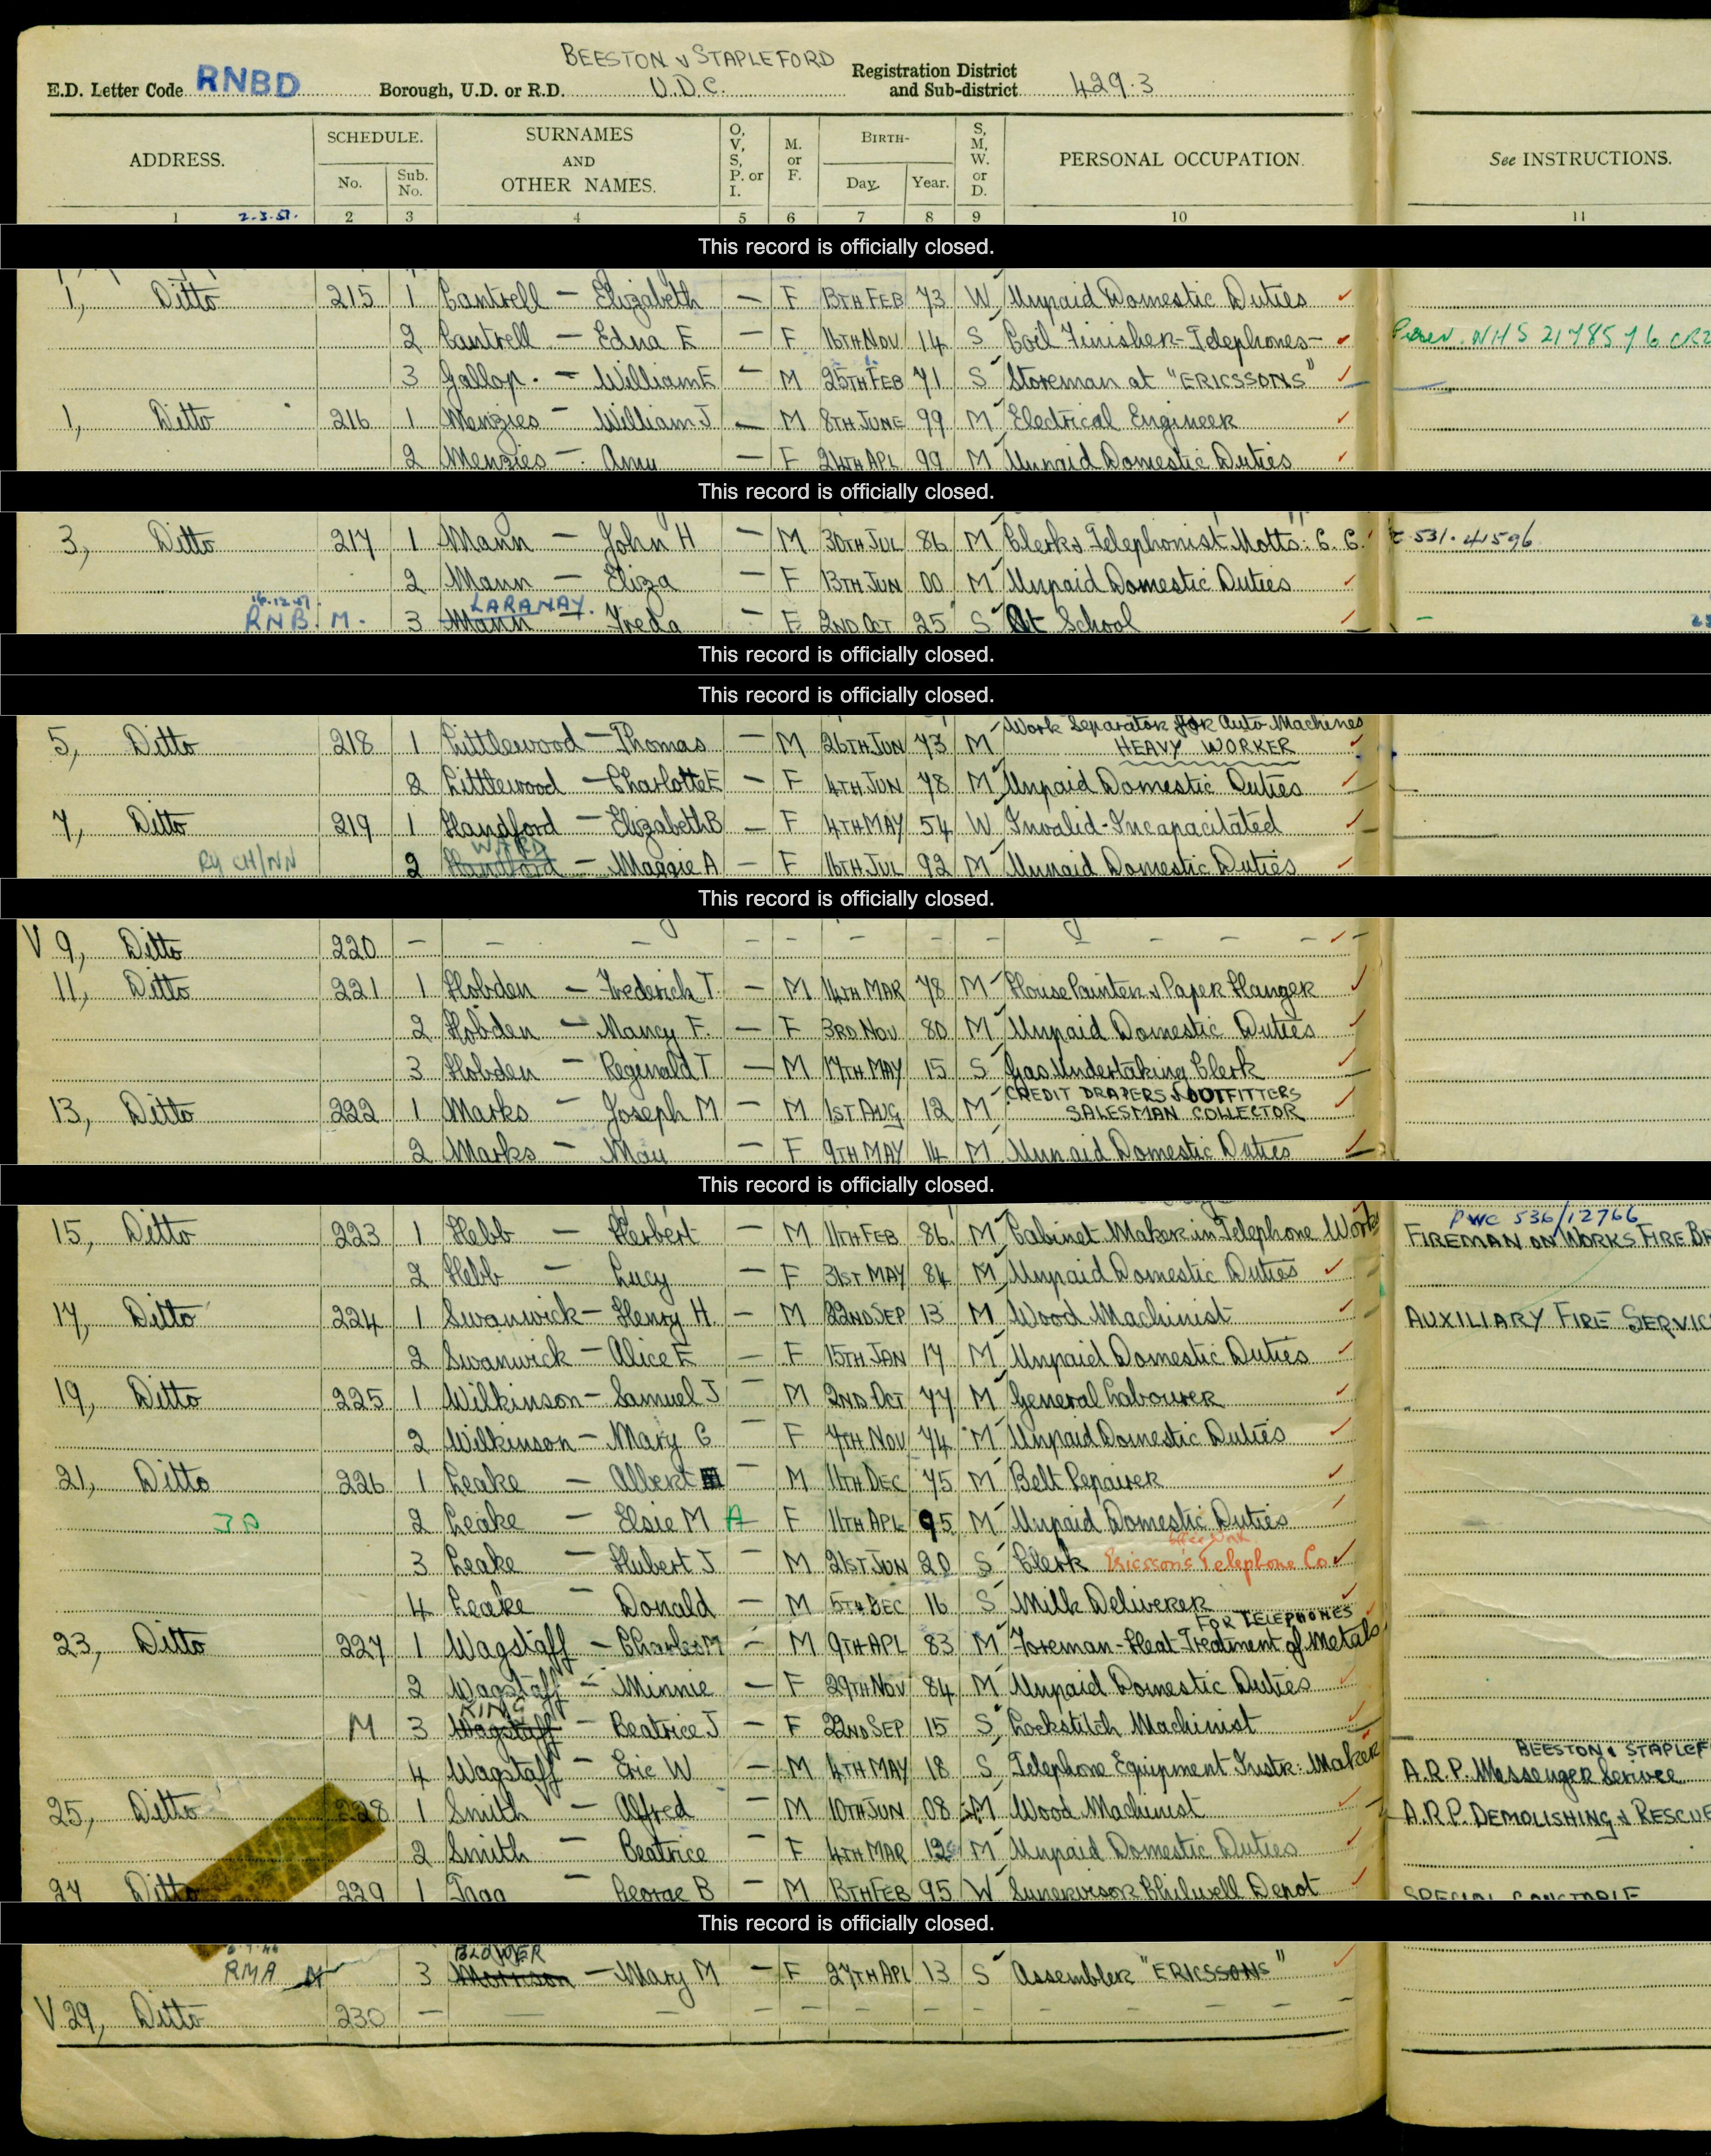 BEESTON & STAPLEFORD
E.D. Letter Code RNBD Borough, U.D. or R.D. U.D.C. Registration District and Sub-district 429.3
ADDRESS. SCHEDULE. No. Sub. No. SURNAMES AND OTHER NAMES. O, V, S, P. or I. M. or F. BIRTH- Day. Year. S, M, W. or D. PERSONAL OCCUPATION. See INSTRUCTIONS.
1 2.3.51. 2 3 4 5 6 7 8 9 10 11
This record is officially closed.
1, Ditto 215 1 Cantrell — Elizabeth — F 13TH FEB 73 W Unpaid Domestic Duties
2 Cantrell — Edna E — F 16TH NOV 14 S Coil Finisher - Telephones -
3 Gallop. — William E — M 25TH FEB 71 S Storeman at "ERICSSONS"
1, Ditto 216 1 Menzies — William J — M 8TH JUNE 99 M Electrical Engineer
2 Menzies — Amy — F 24TH APL 99 M Unpaid Domestic Duties
This record is officially closed.
3, Ditto 217 1 Mann — John H — M 30TH JUL 86 M Clerk & Telephonist Notts: C. C.
2 Mann — Eliza — F 13TH JUN 00 M Unpaid Domestic Duties
16.12.51. LARANAY.
RNB. M. 3 Mann — Freda — F 2ND OCT 25 S At School
This record is officially closed.
This record is officially closed.
5, Ditto 218 1 Littlewood — Thomas — M 26TH JUN 73 M Work Separator for Auto Machines
HEAVY WORKER
2 Littlewood — Charlotte E — F 4TH JUN 78 M Unpaid Domestic Duties
7, Ditto 219 1 Handford — Elizabeth B — F 4TH MAY 54 W Invalid - Incapacitated
RY CH/NN 2 Handford — Maggie A — F 16TH JUL 92 M Unpaid Domestic Duties
This record is officially closed.
V 9, Ditto 220 — — — — — — — — — — — —
11, Ditto 221 1 Hobden — Frederick T. — M 14TH MAR 78 M House Painter & Paper Hanger
2 Hobden — Nancy F. — F 3RD NOV 80 M Unpaid Domestic Duties
3 Hobden — Reginald T — M 17TH MAY 15 S Gas Undertaking Clerk
CREDIT DRAPERS & OUTFITTERS
13, Ditto 222 1 Marks — Joseph M — M 1ST AUG 12 M SALESMAN COLLECTOR
2 Marks — May — F 9TH MAY 14 M Unpaid Domestic Duties
This record is officially closed.
PWC 536/12766
15, Ditto 223 1 Hebb — Herbert M 11TH FEB 86 M Cabinet Maker in Telephone Works FIREMAN ON WORKS FIRE BR
2 Hebb — Lucy — F 31ST MAY 84 M Unpaid Domestic Duties
17, Ditto 224 1 Swanwick — Henry H. — M 22ND SEP 13 M Wood Machinist AUXILIARY FIRE SERVIC
2 Swanwick — Alice E — F 15TH JAN 17 M Unpaid Domestic Duties
19, Ditto 225 1 Wilkinson — Samuel J — M 2ND OCT 77 M General Labourer
2 Wilkinson — Mary C — F 7TH NOV 74 M Unpaid Domestic Duties
21, Ditto 226 1 Leake — Albert — M 11TH DEC 75 M Belt Repairer
2 Leake — Elsie M A F 11TH APL 95 M Unpaid Domestic Duties
3 Leake — Hubert J — M 21ST JUN 20 S Clerk Ericsson's Telephone Co.
4 Leake — Donald — M 5TH DEC 16 S Milk Deliverer
FOR TELEPHONES
23, Ditto 227 1 Wagstaff — Charles M — M 9TH APL 83 M Foreman - Heat Treatment of Metals
2 Wagstaff — Minnie — F 29TH NOV 84 M Unpaid Domestic Duties
KING
M 3 Wagstaff — Beatrice J — F 22ND SEP 15 S Lockstitch Machinist
BEESTON & STAPLEF
4 Wagstaff — Eric W — M 4TH MAY 18 S Telephone Equipment Instr: Maker A.R.P. Messenger Service
25, Ditto 228 1 Smith — Alfred — M 10TH JUN 08 M Wood Machinist A.R.P. DEMOLISHING & RESCUE
2 Smith — Beatrice — F 4TH MAR M Unpaid Domestic Duties
27 Ditto 229 1 Tagg George B — M 13TH FEB 95 W Supervisor Chilwell Depot SPECIAL CONSTABLE
This record is officially closed.
BLOWER
RMA M 3 Morrison — Mary M — F 27TH APL 13 S Assembler "ERICSSONS"
V 29, Ditto 230 — — — — — — — — — — — —